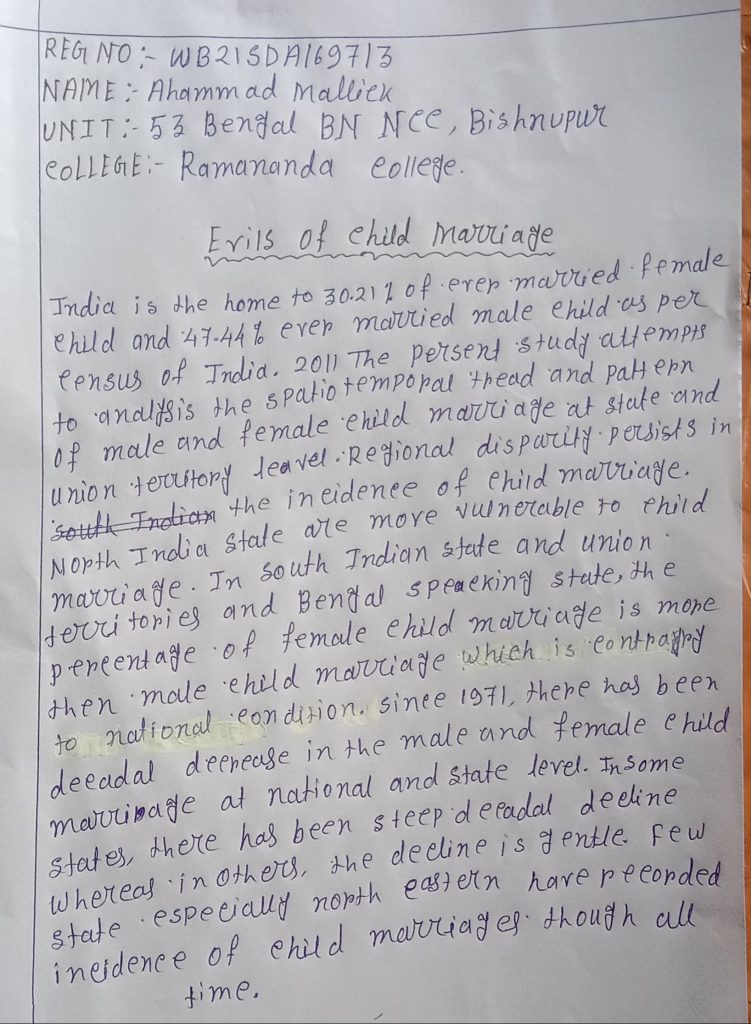 REG NO :- WB21SDA169713
NAME :- Ahammad Mallick
UNIT :- 53 Bengal BN NCC, Bishnupur
COLLEGE :- Ramananda College.
Evils of Child Marriage
India is the home to 30.21 % of ever married female
child and 47.44 % ever married male child as per
census of India. 2011 The persent study attempts
to analysis the spatio temporal thead and pattern
of male and female child marriage at state and
union territory leavel. Regional disparity persists in
south Indian the incidence of child marriage.
North India state are more vulnerable to child
marriage. In South Indian state and union
territories and Bengal speacking state, the
percentage of female child marriage is more
then male child marriage which is contrapry
to national condition. since 1971, there has been
decadal decrease in the male and female child
marriage at national and state level. In some
states, there has been steep decadal decline
whereas in others, the decline is gentle. Few
state especially north eastern have recorded
incidence of child marriages though all
time.